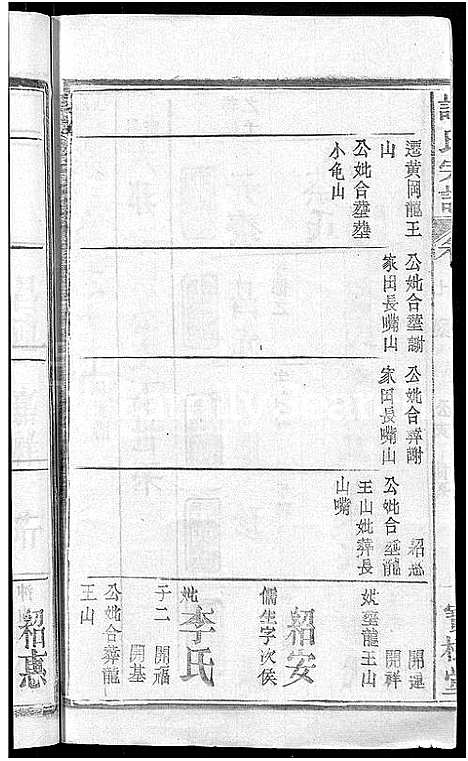 氏宗譜
遷黃岡龍王
山
公妣合塟塟
小龟山
公妣合塟謝
家田長嘴山
公妣合葬謝
家田長嘴山
紹忠
公妣合塟龍
王山妣葬長
山嘴
開運
開祥
妣塟龍王山
紹安
儒生字次侯
妣李氏
子二 開福
開基
公妣合葬龍
王山
紹惠